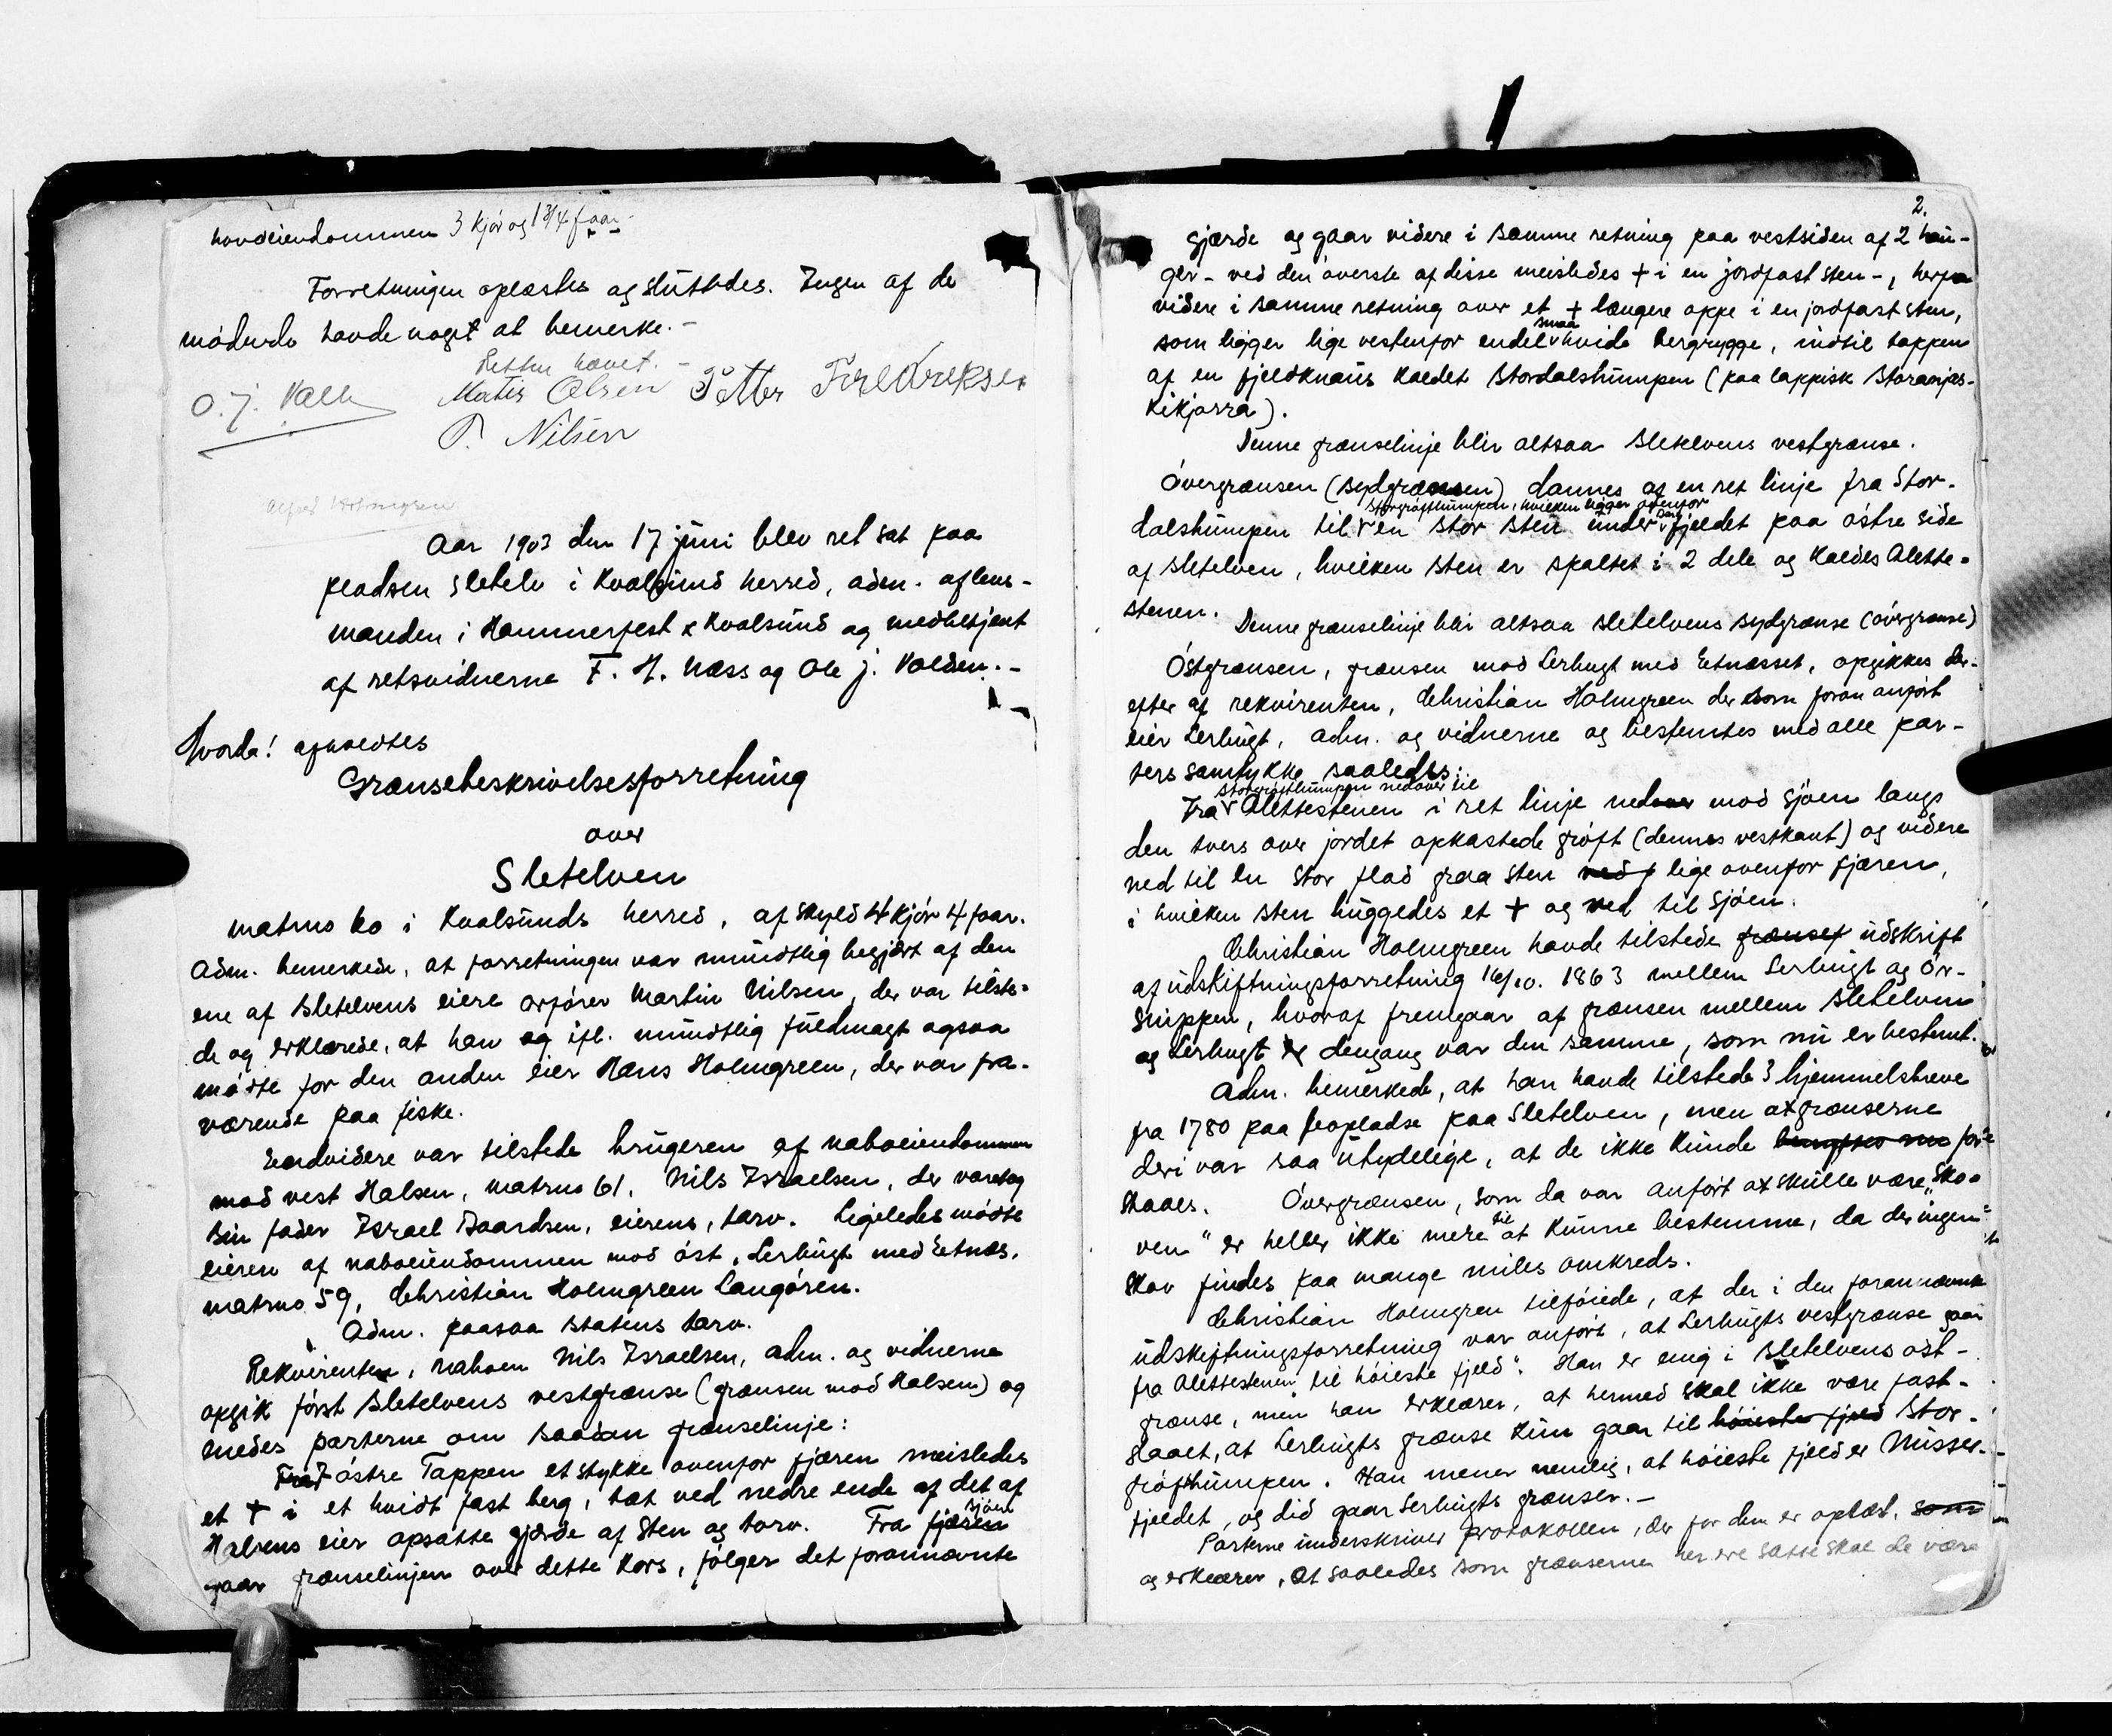 hovdeiendommen 3 kjør og 1 3/4 faar.
Forretningen oplæstes og sluttedes. Ingen af de
mødende havde noget at bemerke.-
Retten hævet.-
O. J. Mortes Olsen Petter Fredreksen
P. Nilsen
Aar 1903 den 17 juni blev ret sat paa
pladsen Sletelv i Kvalsund herred, adm. af lens-
manden i Hammerfest & Kvalsund og medbetjent
af retsvidnerne F. H. Næss og Ole J. Volden.-
Hvorda! afholdtes
Grænsebeskrivelsesforretning
over
Sletelven
matrno 60 i Kvalsunds herred, af skyld 4 kjør 4 faar.
Adm. bemerkede, at forretningen var mundtlig begjært af den
ene af Sletelvens eiere ordfører Martin Nilsen, der var tilste-
de og erklærede, at han og ifl. mundtlig fuldmagt ogsaa
mødte for den anden eier Hans Holmgreen, der var fra-
værende paa fiske.
Endvidere var tilstede brugeren af naboeiendommen
mod vest Halsen, matrno 61, Nils Israelsen, der varetog
sin fader Israel Baardsen, eierens, tarv. Ligeledes mødte
eieren af naboeiendommen mod øst, Lerbugt med Etnæs,
matrno 59, Christian Holmgreen Langøren.
Adm. paasaa statens tarv.
Rekvirenten, naboen Nils Israelsen, adm. og vidnerne
opgik først Sletelvens vestgrænse (grænsen mod Halsen) og
enedes parterne om saadan grænselinje:
Ved østre Tappen et stykke ovenfor fjæren meisledes
et + i et hvidt fast berg, tæt ved nedre ende af det af
Halsens eier opsatte gjærde af sten og torv. Fra fjæren sjøen
gaar grænselinjen over dette kors, følger det forannævnte
2.
gjærde og gaar videre i samme retning paa vestsiden af 2 hau-
ger - ved den øverste af disse meisledes + i en jordfast sten -, herfra
videre i samme retning over et + længere oppe i en jordfast sten,
som ligger lige vestenfor endel smaa hvide bergrygge, indtil toppen
af en fjeldknaus kaldet Stordalshumpen (paa lappisk Storanjas-
kikjorra).
Denne grænselinje blir altsaa Sletelvens vestgrænse.
Øvergrænsen (sydgrænsen) dannes af en ret linje fra Stor-
Storgrøfthumpen, hvilken ligger ovenfor
dalshumpen til en stor sten under berg fjeldet paa østre side
af Sletelven, hvilken sten er spaltet i 2 dele og kaldes Alette-
stenen.
Denne grænselinje blir altsaa Sletelvens sydgrænse (øvergrænse)
Østgrænsen, grænsen mod Lerbugt med Etnæsset, opgikkes der-
efter af rekvirenten, Christian Holmgreen der som foran anført
eier Lerbugt, adm. og vidnerne og bestemtes med alle par-
ters samtykke saaledes:
Storgrøfthumpen nedover til
Fra Alettestenen i ret linje nedover mod sjøen langs
den tvers over jordet opkastede grøft (dennes vestkant) og videre
ned til en stor flad graa sten ned f lige ovenfor fjæren,
i hvilken sten huggedes et + og ned til sjøen.
Christian Holmgreen havde tilstede grænsef udskrift
af udskiftningsforretning 16/10. 1863 mellem Lerbugt og Ør-
snippen, hvoraf fremgaar at grænsen mellem Sletelven
og Lerbugt dengang var den samme, som nu er bestemt.
Adm. bemerkede, at han havde tilstede 3 hjemmelsbreve
fra 1780 paa pladse paa Sletelven, men at grænserne
deri var saa utydelige, at de ikke kunde for-
staaes. Øvergrænsen, som da var anført at skulle være „Sko-
ven" er heller ikke mere til at kunne bestemme, da der ingen
skov findes paa mange miles omkreds.
Christian Holmgren tilføiede, at der i den forannævnte
udskiftningsforretning var anført, at Lerbugts vestgrænse gaar
fra Alettestenen „til høieste fjeld". Han er enig i Sletelvens øst-
grænse, men han erklærer, at hermed skal ikke være fast-
slaaet, at Lerbugts grænse kun gaar til høieste fjeld Stor-
grøfthumpen. Han mener nemlig, at høieste fjeld er Nusser-
fjeldet, og did gaar Lerbugts grænser.-
Parterne underskriver protokollen, der for dem er oplæst, som
og erklærer, at saaledes som grænserne her ere satte skal de være